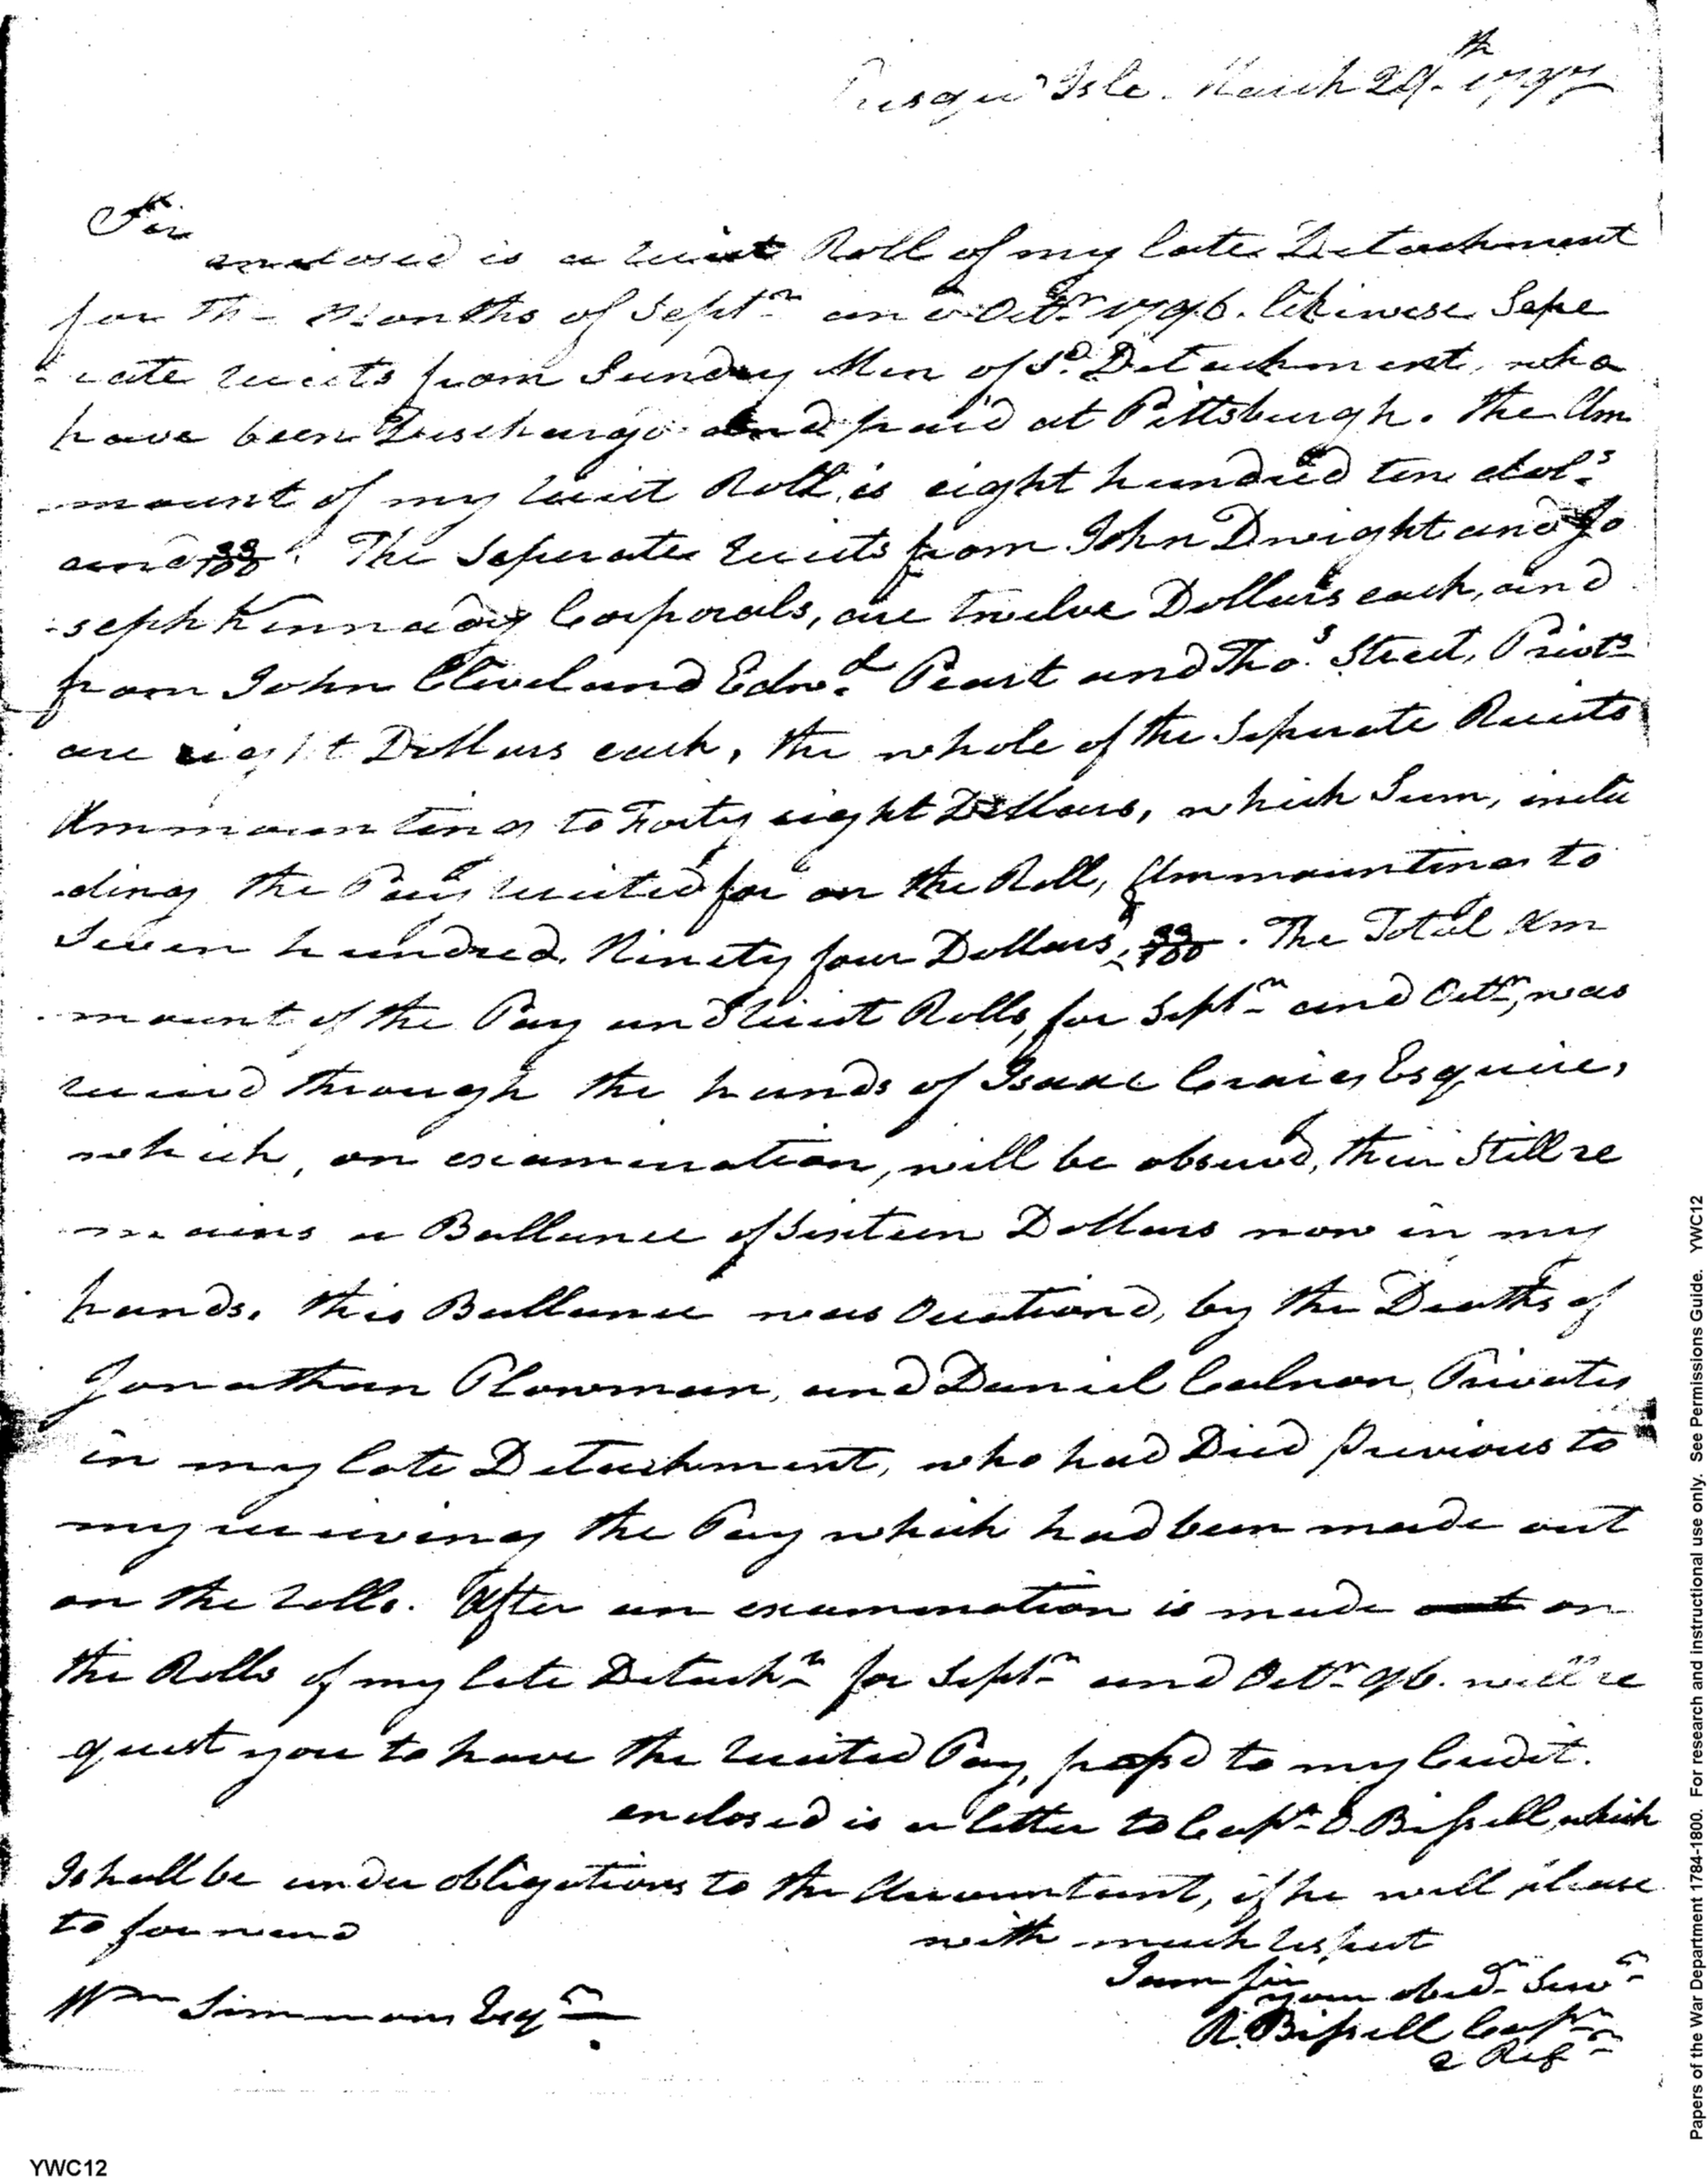 Presqu' Isle. March 29th 1797
Sir
enclosed is a reciet Roll of my late Detachment
for the Months of Septr and Octr 1796. likewise Sepe
rate reciets from Sundry Men of sd. Detachment, who
have been Discharg'd and paid at Pittsburgh. The Am
mount of my reciet Roll, is eight hundred ten dols.
and 99/100. The Seperate reciets from John Dwight and Jo
seph Kennaday Corporals, are twelve Dollars each, and
from John Cleveland Edwd. Peart and Thos. Street, Privts
are eight Dollars each, the whole of the Seperate Reciets
Ammounting to Forty eight Dollars, which Sum, inclu
ding the Pay recieted for on the Roll, Ammounting to
Seven hundred Ninety four Dollars, 99/100. The Total Am
mount of the Pay and reciet Rolls, for Septr and Octr, was
recievd through the hands of Isaac Craig Esquire,
which, on examination, will be observd, their Still re
mains a Ballance of Sixteen Dollars now in my
hands. this Ballance was Occationd, by the Deaths of
Jonathan Plowman, and Daniel Colnon, Privates
in my late Detachment, who had Died Previous to
my recieving the Pay which had been made out
on the rolls. After an examination is made out on
the Rolls of my late Detacht for Septr and Octr 96. will re
quest you to have the recieted Pay, pass'd to my Credit.
enclosed is a letter to Capt D. Bissell, which
I shall be under obligations to the Accountant, if he will please
to forward
with much respect
I am Sir
your obedt Servt
Wm Simmons Esqr
R. Bissell Capt
2 Regt
YWC12
Papers of the War Department 1784-1800. For research and instructional use only. See Permissions Guide. YWC12